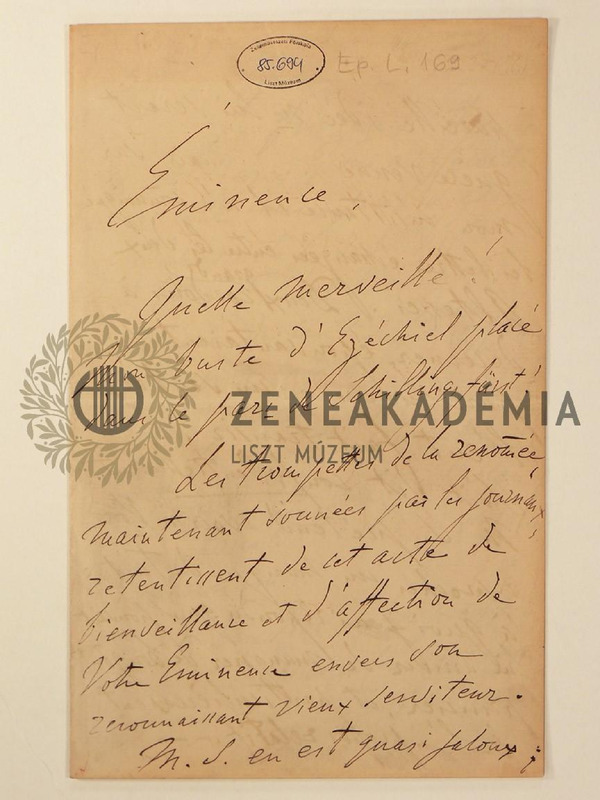 Zeneművészeti Főiskola
85.694
Liszt Múzeum
Ep. L. 169
Eminence,
Quelle merveille!
Mon buste d'Ezéchiel placé
dans le parc de Schillingsfürst!
ZENEAKADEMIA
LISZT MÚZEUM
Les trompettes de la renommée,
maintenant sonnées par les journaux,
retentissent de cet acte de
bienveillance et d'affection de
Votre Eminence envers son
reconnaissant vieux serviteur.
M. S. en est quasi jaloux;